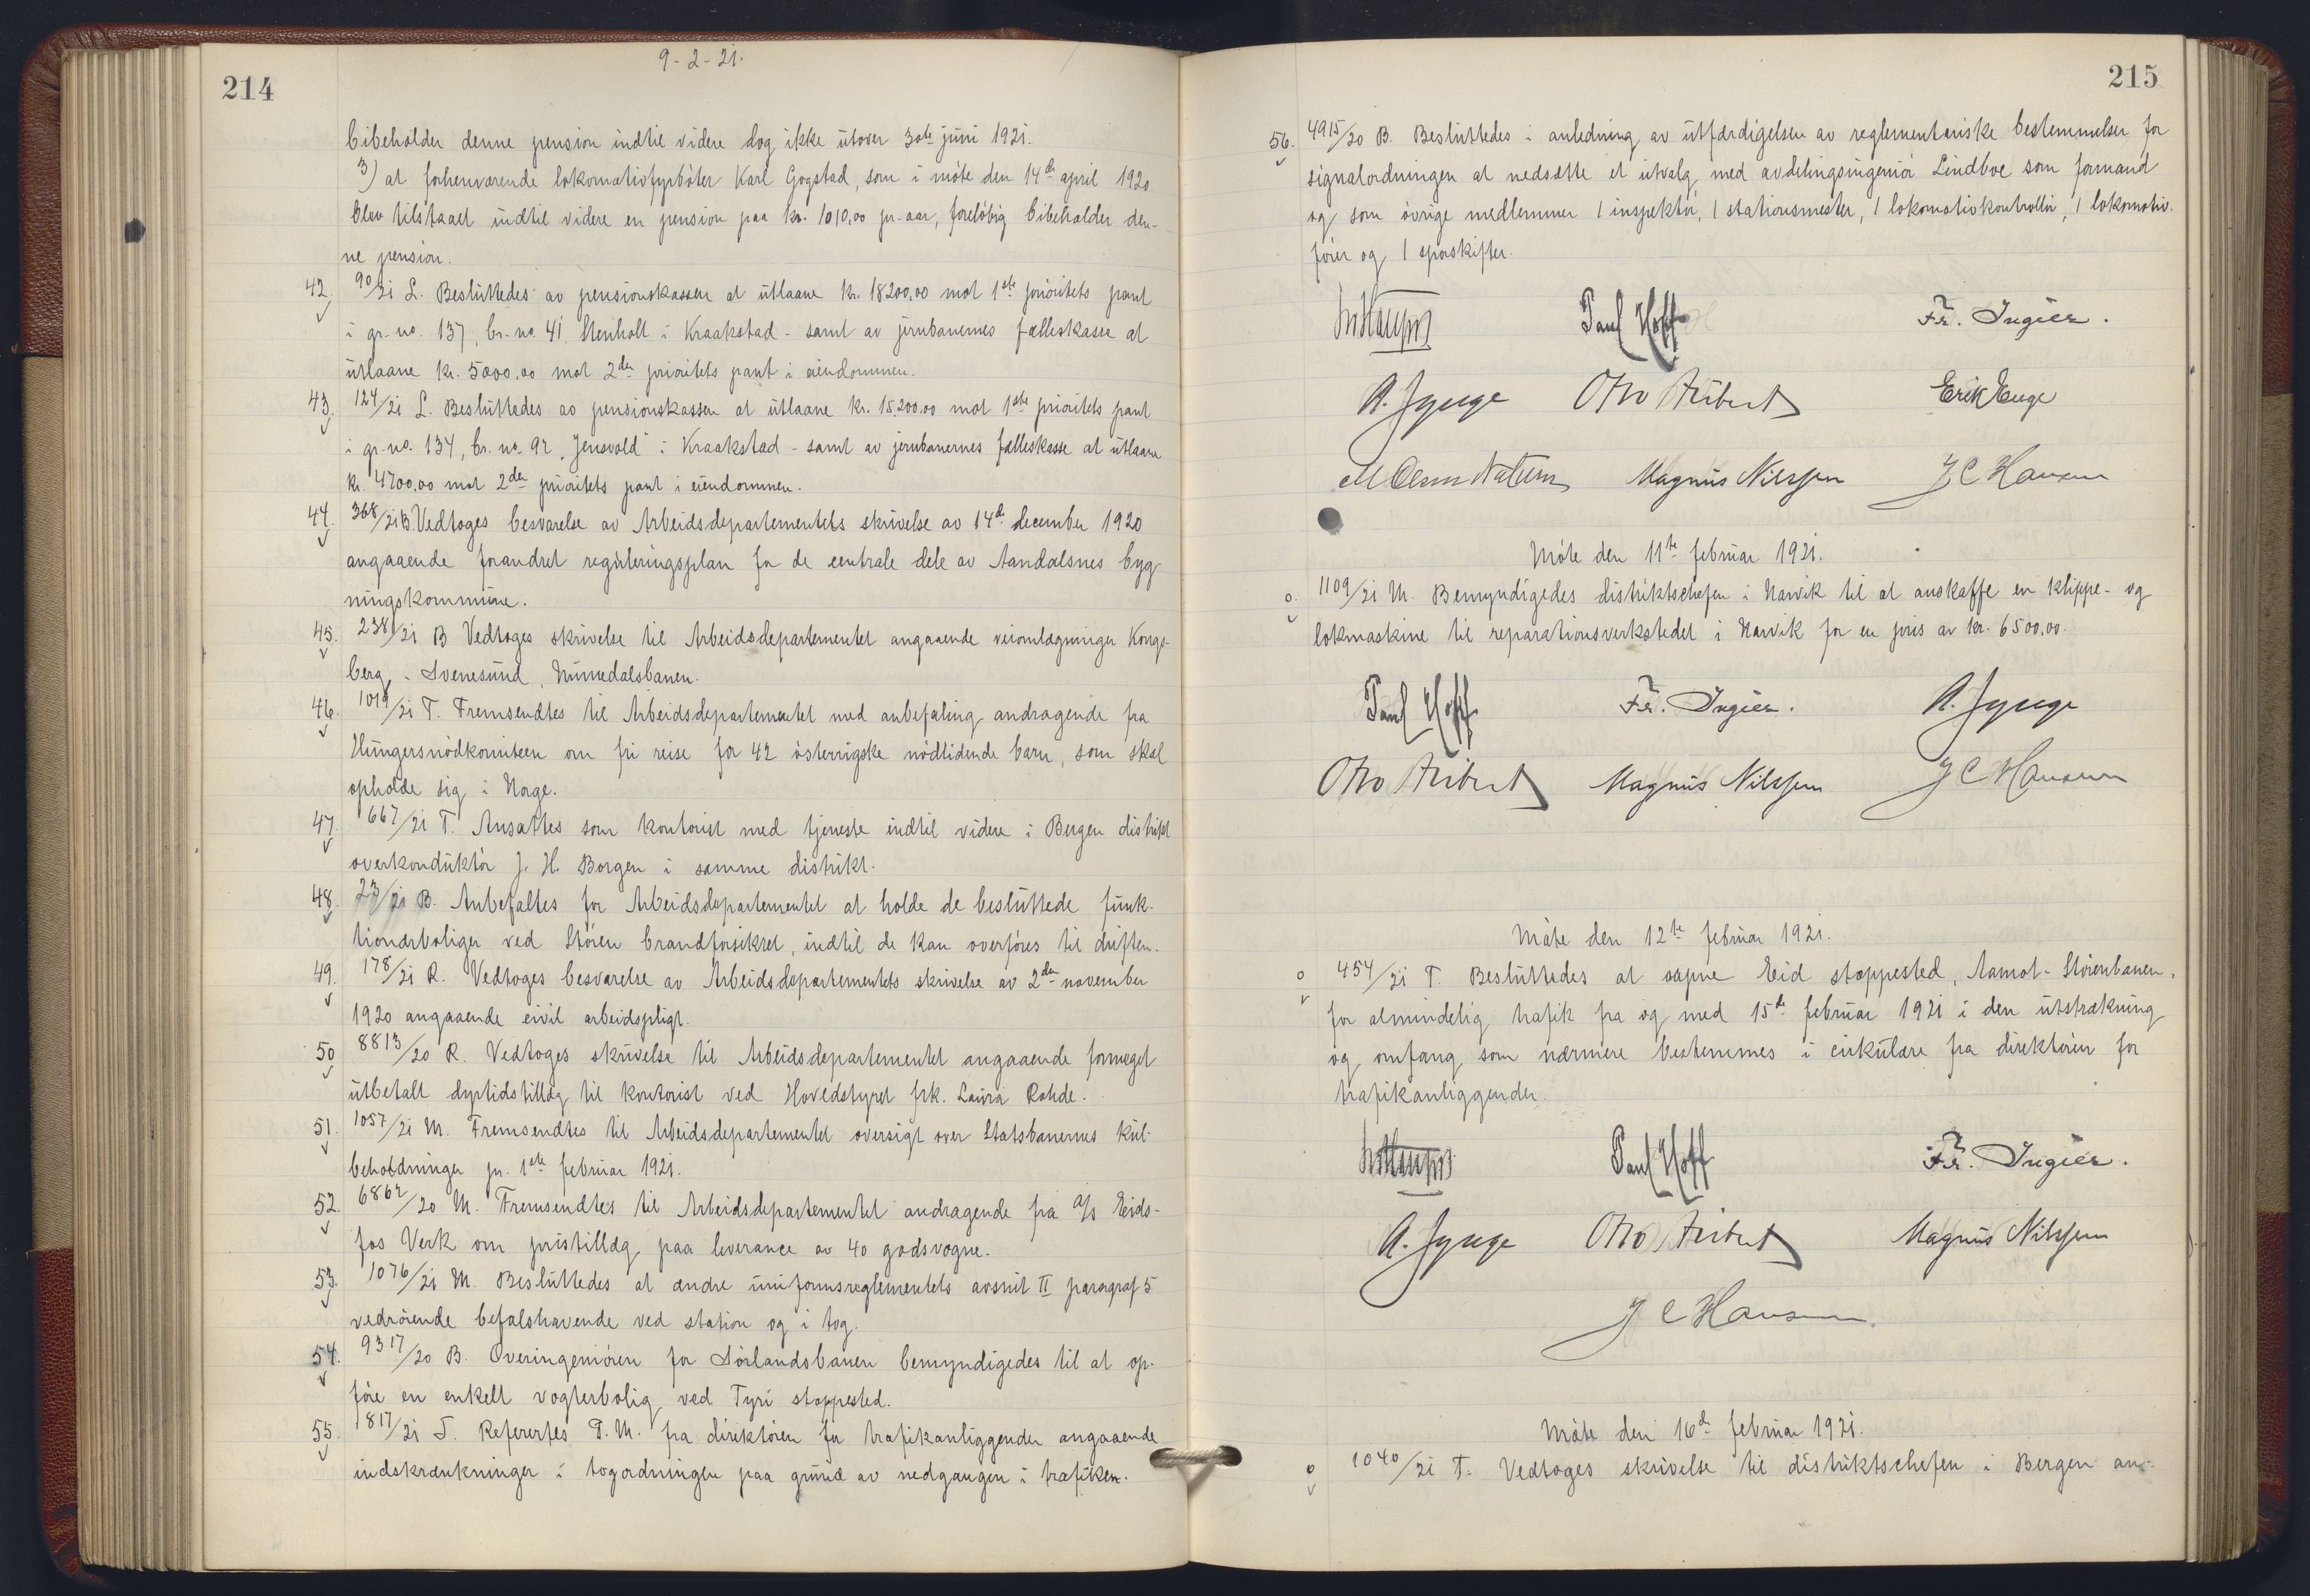 214
9-2-21.
bibeholder denne pension indtil videre dog ikke utover 30te juni 1921.
3) at forhenværende lokomotivfyrbøter Karl Gogstad, som i møte den 14de april 1920
blev tilstaaet indtil videre en pension paa kr. 1010,00 pr. aar, foreløbig bibeholder den-
ne pension.
42. 90/21 L. Besluttedes av pensionskassen at utlaane kr. 18200,00 mot 1ste prioritets pant
i gr. no. 137, br. no. 41 Stenholt i Kraakstad - samt av jernbanernes fælleskasse at
utlaane kr. 5000,00 mot 2den prioritets pant i eiendommen.
43. 124/21 L. Besluttedes av pensionskassen at utlaane kr. 15,200,00 mot 1ste prioritets pant
i gr. no. 134, br. no. 92 "Jensvold" i Kraakstad - samt av jernbanernes fælleskasse at utlaane
kr. 4700,00 mot 2den prioritets pant i eiendommen.
44. 368/21 B. Vedtoges besvarelse av Arbeidsdepartementets skrivelse av 14de december 1920
angaaende forandret reguleringsplan for de centrale dele av Aandalsnes byg-
ningskommune.
45. 238/21 B Vedtoges skrivelse til Arbeidsdepartementet angaaende veiomlægninger Kongs-
berg - Svenesund, Numedalsbanen.
46. 1019/21 T. Fremsendtes til Arbeidsdepartementet med anbefaling andragende fra
Hungersnødkomiteen om fri reise for 42 østerrigske nødlidende barn, som skal
opholde sig i Norge.
47. 667/21 T. Ansattes som kontorist med tjeneste indtil videre i Bergen distrikt
overkonduktør J. H. Borgen i samme distrikt.
48. 23/21 B. Anbefaltes for Arbeidsdepartementet at holde de besluttede funk-
tionærboliger ved Støren brandforsikret, indtil de kan overføres til driften.
49. 178/21 R. Vedtoges besvarelse av Arbeidsdepartementets skrivelse av 2den november
1920 angaaende civil arbeidspligt.
50. 8813/20 R. Vedtoges skrivelse til Arbeidsdepartementet angaaende formeget
utbetalt dyrtidstillæg til kontorist ved Hovedstyret frk. Laura Rohde.
51. 1057/21 M. Fremsendtes til Arbeidsdepartementet oversigt over Statsbanernes kul-
beholdninger pr. 1ste februar 1921.
52. 6862/20 M. Fremsendtes til Arbeidsdepartementet andragende fra A/S Eids-
fos Verk om pristillæg paa leverance av 40 godsvogne.
53. 1076/21 M. Besluttedes at ændre uniformsreglementets avsnit II paragraf 5
vedrørende befalshavende ved station og i tog.
54. 9317/20 B. Overingeniøren for Sørlandsbanen bemyndigedes til at op-
føre en enkelt vogterbolig ved Tyri stoppested.
55. 817/21 T. Referertes P.M. fra direktøren for trafikanliggender angaaende
indskrænkninger i togordningen paa grund av nedgangen i trafiken.
215
56. 4915/20 B. Besluttedes i anledning av utfærdigelsen av reglementariske bestemmelser for
signalordningen at nedsætte et utvalg med avdelingsingeniør Lindboe som formand
og som øvrige medlemmer 1 inspektør, 1 stationsmester, 1 lokomotivkontrollør, 1 lokomotiv-
fører og 1 sporskifter.
Paul Hoff Fr. Ingier.
Magnus Nilssen J C Hansen
Møte den 11te februar 1921.
o. 1109/21 M. Bemyndigedes distriktschefen i Narvik til at anskaffe en klippe- og
lokmaskine til reparationsverkstedet i Narvik for en pris av kr. 6500,00.
Paul Hoff Fr. Ingier.
Magnus Nilssen J C Hansen
Møte den 12te februar 1921.
o 454/21 T. Besluttedes at aapne Eid stoppested, Aamot-Størenbanen,
for almindelig trafik fra og med 15de februar 1921 i den utstrækning
og omfang som nærmere bestemmes i cirkulære fra direktøren for
trafikanliggender.
Paul Hoff Fr. Ingier.
Magnus Nilssen
J C Hansen
Møte den 16de februar 1921.
o 1040/21 T. Vedtoges skrivelse til distriktschefen i Bergen an-